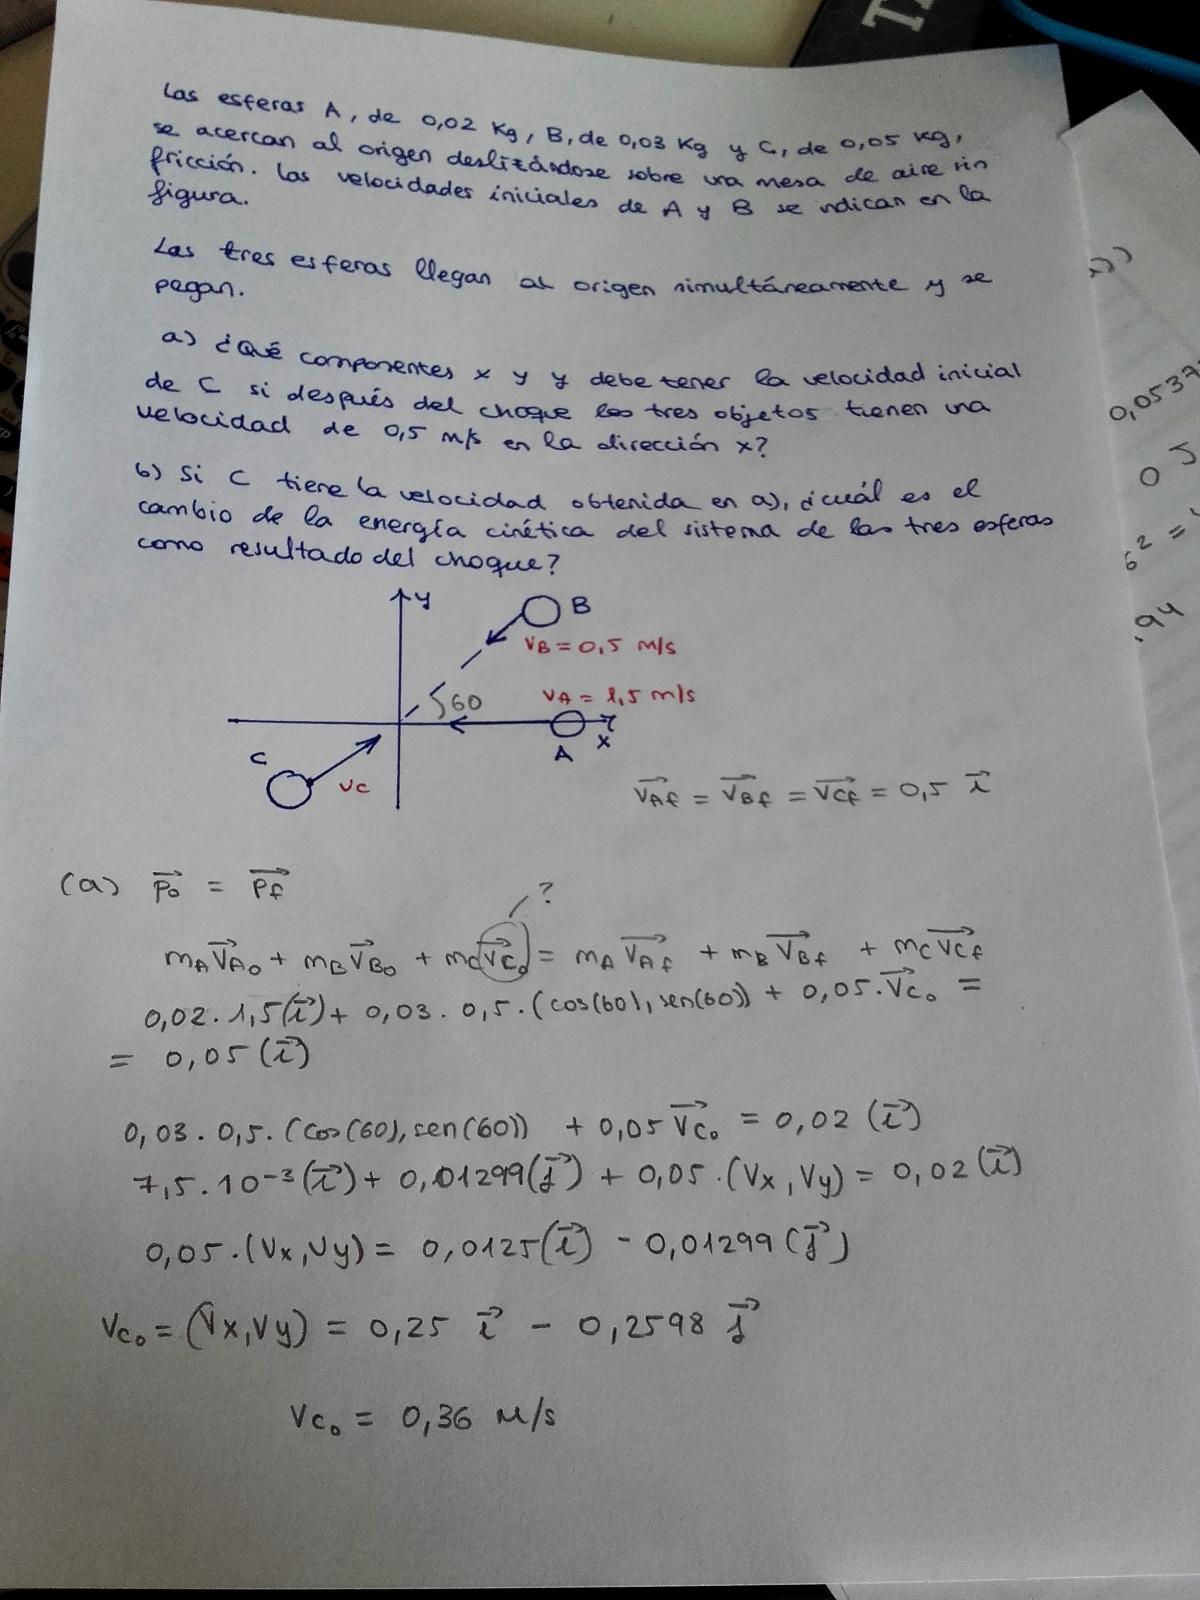 TA
Las esferas A, de 0,02 Kg, B, de 0,03 Kg y C, de 0,05 Kg,
se acercan al origen deslizándose sobre una mesa de aire sin
fricción. Las velocidades iniciales de A y B se indican en la
figura.
Las tres esferas llegan al origen simultáneamente y se
pegan.
a) ¿Qué componentes x y y debe tener la velocidad inicial
de C si después del choque los tres objetos tienen una
velocidad de 0,5 m/s en la dirección x?
b) Si C tiene la velocidad obtenida en a), ¿cuál es el
cambio de la energía cinética del sistema de las tres esferas
como resultado del choque?
y
B
VB = 0,5 m/s
60
VA = 1,5 m/s
C
VC
A
X
\vec{VAf} = \vec{VBf} = \vec{VCf} = 0,5 \vec{i}
(a) \vec{po} = \vec{pf}
?
mA\vec{VAo} + mB\vec{VBo} + mC\vec{VCo} = mA\vec{VAf} + mB\vec{VBf} + mC\vec{VCf}
0,02 . 1,5(\vec{i}) + 0,03 . 0,5 . (cos(60), sen(60)) + 0,05 . \vec{VCo} =
= 0,05 (\vec{i})
0,03 . 0,5 . (cos(60), sen(60)) + 0,05 \vec{VCo} = 0,02 (\vec{i})
7,5 . 10^{-3} (\vec{i}) + 0,01299(\vec{j}) + 0,05 . (Vx, Vy) = 0,02 (\vec{i})
0,05 . (Vx, Vy) = 0,0125(\vec{i}) - 0,01299 (\vec{j})
VCo = (Vx, Vy) = 0,25 \vec{i} - 0,2598 \vec{j}
VCo = 0,36 m/s
0,0539
0 5
6² =
,94